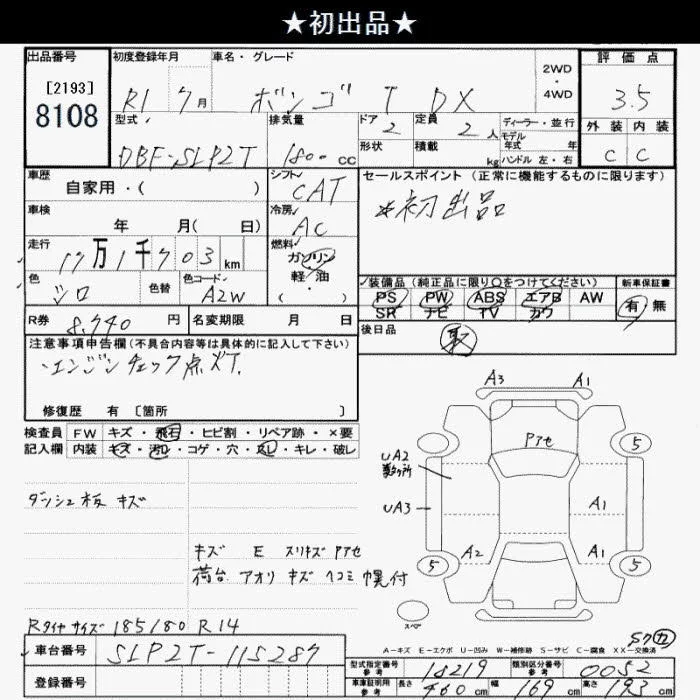 ★初出品★
出品番号
[2193]
8108
初度登録年月
R1 7月
車名・グレード
ボンゴ T DX
2WD
・
4WD
評価点
3.5
外装 内装
C C
型式
DBF-SLP2T
排気量
1800 CC
ドア
2
定員
2人
ディーラー・並行
モデル
年式 年
形状
積載
kg
ハンドル 左・右
車歴
自家用・( )
シフト
CAT
セールスポイント(正常に機能するものに限ります)
*初出品
車検
年 月( 日)
冷房
AC
走行
17万1千703km
燃料
ガソリン
軽・油
( ・ )
色
シロ
色替
色コード
A2W
装備品(純正品に限り○をつけてください)
PS PW ABS エアB AW
SR ナビ TV カワ
新車保証書
有 無
R券
8,740円
名変期限 月 日
後日品
取
注意事項申告欄(不具合内容等は具体的に記入して下さい)
・エンジンチェック点灯.
修復歴 有 [箇所 ]
検査員
記入欄
FW キズ・飛石・ヒビ割・リペア跡・×要
内装 キズ・汚レ・コゲ・穴・スレ・キレ・破レ
ダッシュ板 キズ
キズ E スリキズ Pアセ
荷台 アオリ キズ ヘコミ 幌付
Rタイヤサイズ 185/80 R14
A3 A1
Pアセ
5 5
UA2
UA3
A1
A2 A1
5 5
スペア
A-キズ E-エクボ U-凹み W-補修跡 S-サビ C-腐食 XX-交換済
車台番号
SLP2T-115287
登録番号
型式指定番号
参考
18219
類別区分番号
参考
0052
車庫証明用
参考
長さ 460cm 幅 169cm 高さ 193cm